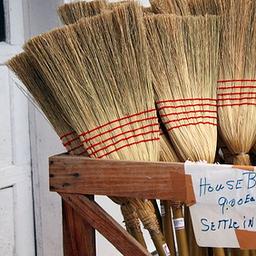 House B
9.00 Ea
Settle in